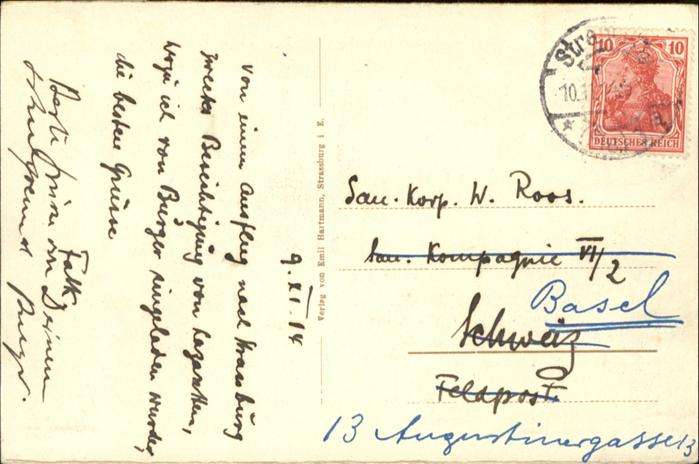 Von einem Ausflug nach Strassburg
zwecks Besichtigung von Lazaretten,
wozu ich von Bürger eingeladen wurde,
die besten Grüsse
Falk
Beste Grüsse
9. XI. 14
Verlag von Emil Hartmann, Strassburg i. E.
10 10
DEUTSCHES REICH
San.-Korp. W. Roos.
San. Kompagnie VI/2
Basel
Schweiz
Feldpost
13 Augustinergasse 13